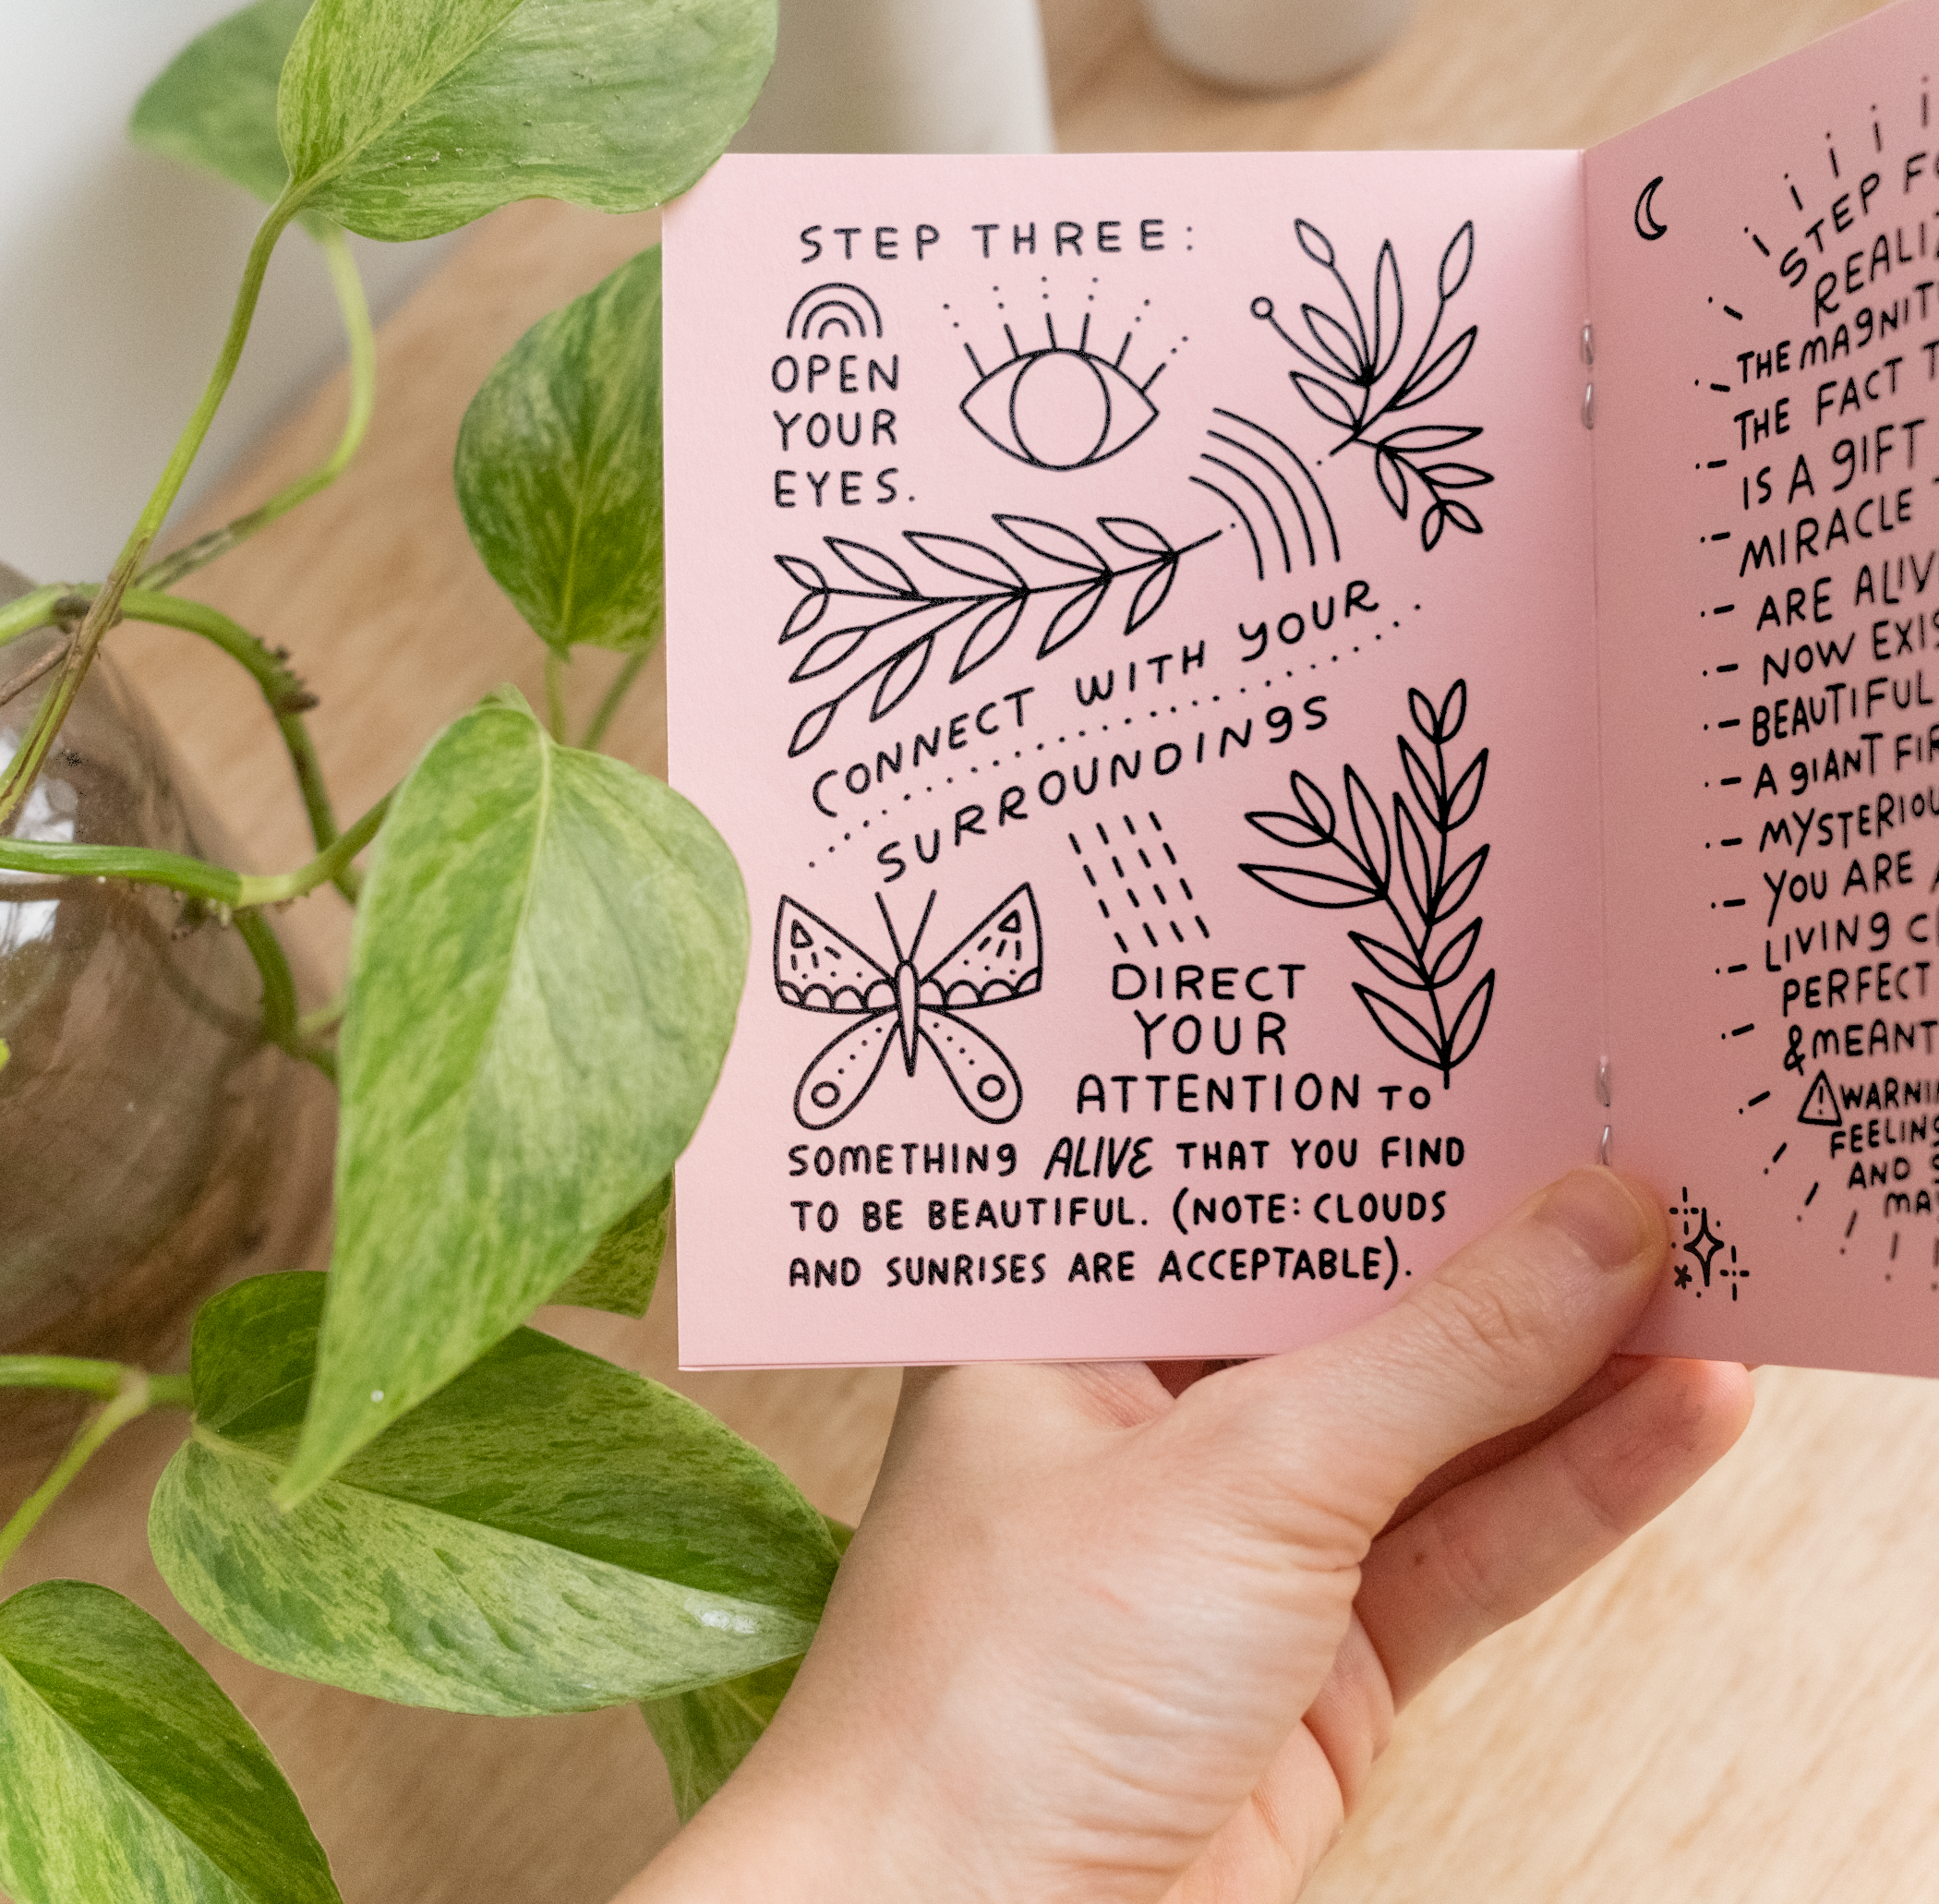 STEP THREE:
OPEN
YOUR
EYES.
CONNECT WITH YOUR
SURROUNDINGS
DIRECT
YOUR
ATTENTION TO
SOMETHING ALIVE THAT YOU FIND
TO BE BEAUTIFUL. (NOTE: CLOUDS
AND SUNRISES ARE ACCEPTABLE).
STEP
THE
THE FACT
IS A GIFT
MIRACLE
ARE
NOW
BEAUTIFUL
A GIANT
YOU ARE
LIVING
PERFECT
& MEANT
AND